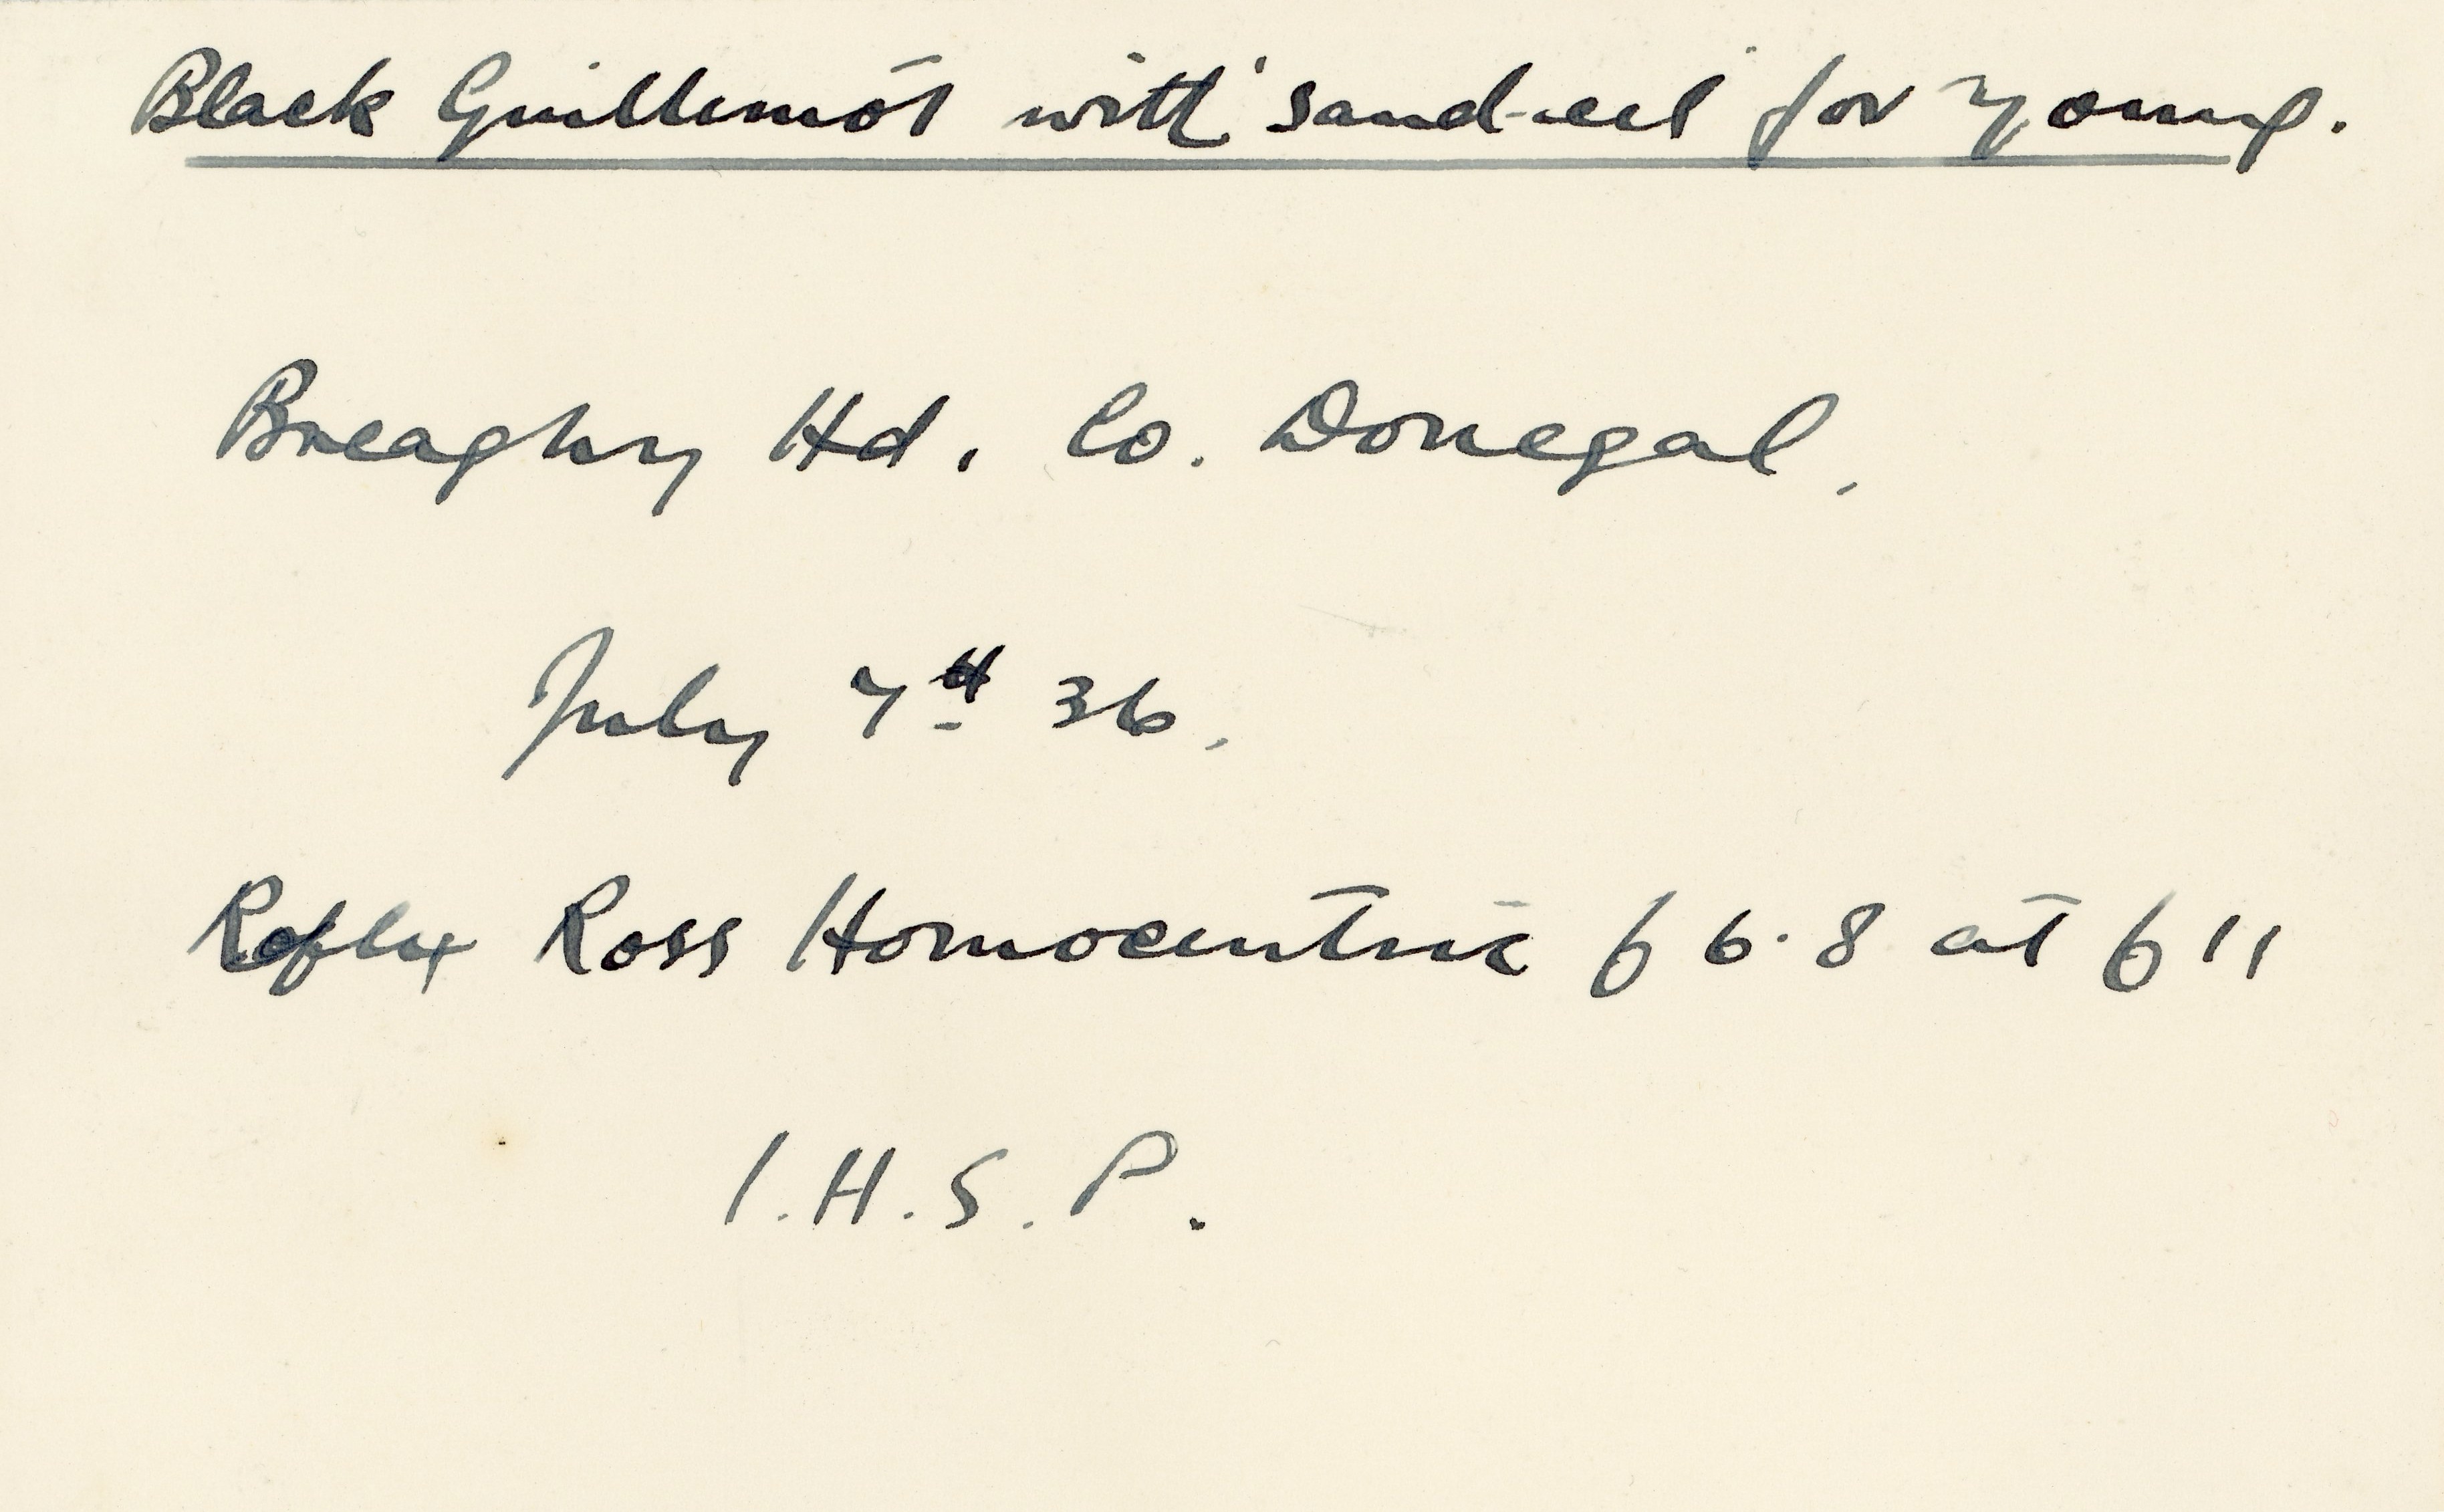 Black Guillemot with 'sand-eel' for young.
Breaghy Hd. Co. Donegal.
July 7th 36.
Reflex Ross Homocentric f 6.8 at f 11
I.H.S.P.